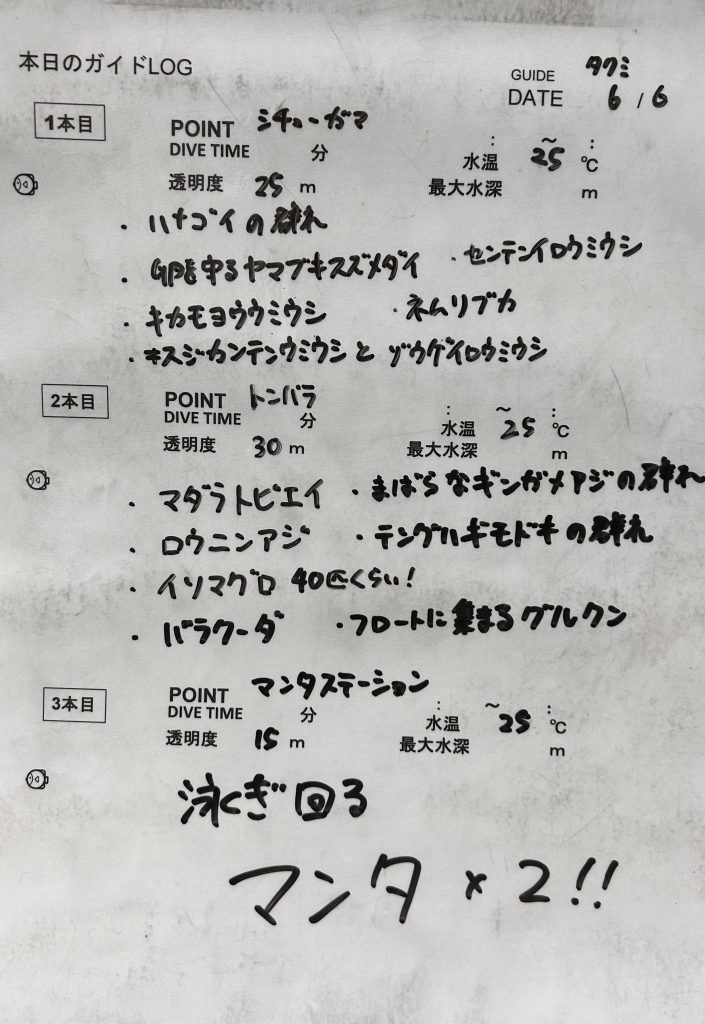 本日のガイドLOG
GUIDE タクミ
DATE 6 / 6
1本目
POINT シチューガマ
DIVE TIME 分 : ~ :
水温 25 ℃
透明度 25 m 最大水深 m
・ハナゴイの群れ
・卵を守るヤマブキスズメダイ ・センテンイロウミウシ
・キカモヨウウミウシ ・ネムリブカ
・キスジカンテンウミウシと ゾウゲイロウミウシ
2本目
POINT トンバラ
DIVE TIME 分 : ~ :
水温 25 ℃
透明度 30 m 最大水深 m
・マダラトビエイ ・まばらなギンガメアジの群れ
・ロウニンアジ ・テングハギモドキの群れ
・イソマグロ 40匹くらい!
・バラクーダ ・フロートに集まるグルクン
3本目
POINT マンタステーション
DIVE TIME 分 : ~ :
水温 25 ℃
透明度 15 m 最大水深 m
泳くぎ回る
マンタ × 2!!